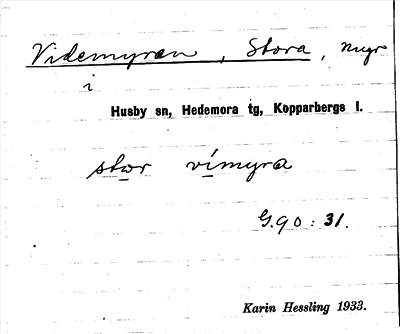 Videmyran, Stora, myr
i
Husby sn, Hedemora tg, Kopparbergs l.
stor vimyra
G.90:31.
Karin Hessling 1933.